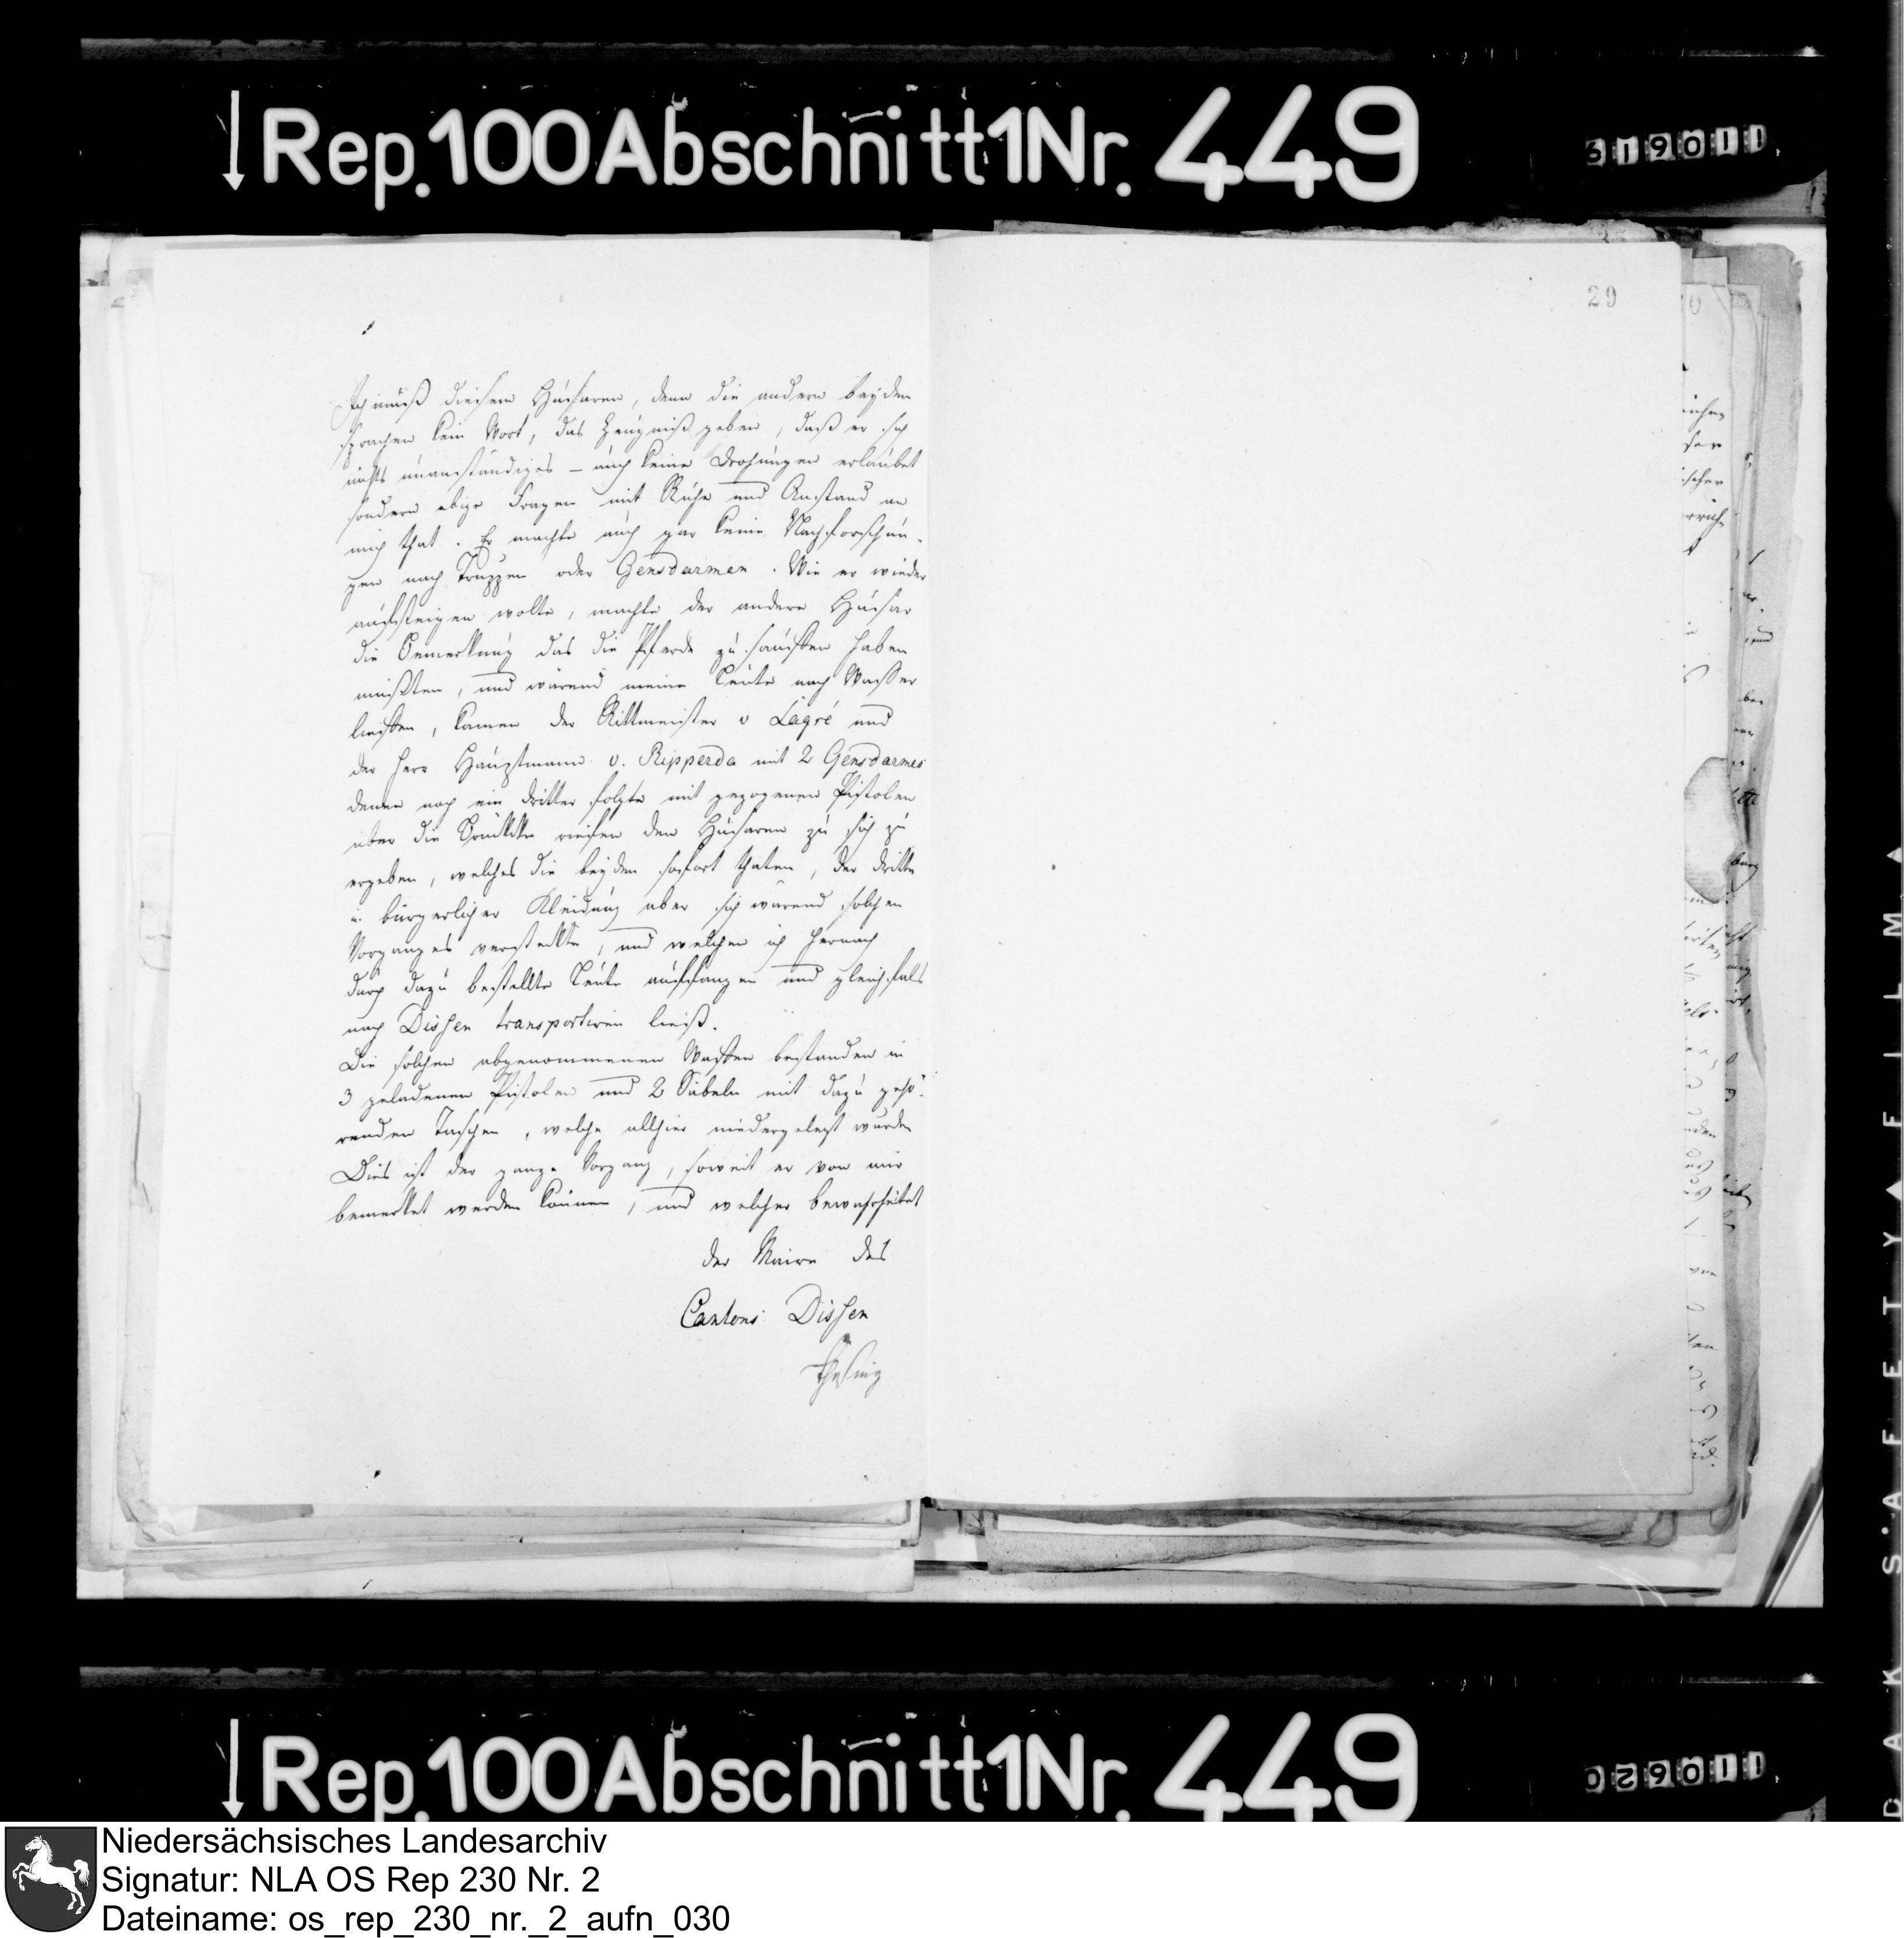 Rep.100Abschnitt1Nr.449
619011
29
Ich muß diesem Húsaren, denn die andern beyden
sprachen kein Wort, das Zeúgniß geben, daß er sich
nichts unanständiges – aúch keine Drohúngen erlaúbet
sondern obige Fragen mit Rúhe und Anstand an
mich that. Er machte aúch gar keine Nachforschún-
gen nach Truppen oder Gensdarmen. Wie er wieder
aúfsteigen wolte, machte der andere Húsar
die Bemerkúng das die Pferde zú saúffen haben
müßten, und wärend meine Leúte nach Wasser
lieffen, kamen der Rittmeister v Lágré und
der Herr Haúptmann v. Ripperda mit 2 Gensdarmes
denen noch ein dritter folgte mit gezogenen Pistolen
über die Brükke riefen den Húsaren zú sich zú
ergeben, welches die beyden sofort thaten, der dritte
in bürgerlicher Kleidúng aber sich wärend solchen
Vorganges verstekte, und welchen ich hernach
dúrch dazú bestellte Leúte aúffangen und gleichfals
nach Dissen transportiren ließ.
Die solchen abgenommenen Waffen bestanden in
3 geladenen Pistolen und 2 Säbeln mit dazú gehö-
renden Taschen, welche allhier niedergelegt wurden
Dies ist der ganze Vorgang, soweit er von mir
bemerket werden können, und welcher bewahrheitet
der Maire des
Cantons Dissen
Rep.100Abschnitt1Nr.449
029011
SAFETY FILM
Niedersächsisches Landesarchiv
Signatur: NLA OS Rep 230 Nr. 2
Dateiname: os_rep_230_nr._2_aufn_030